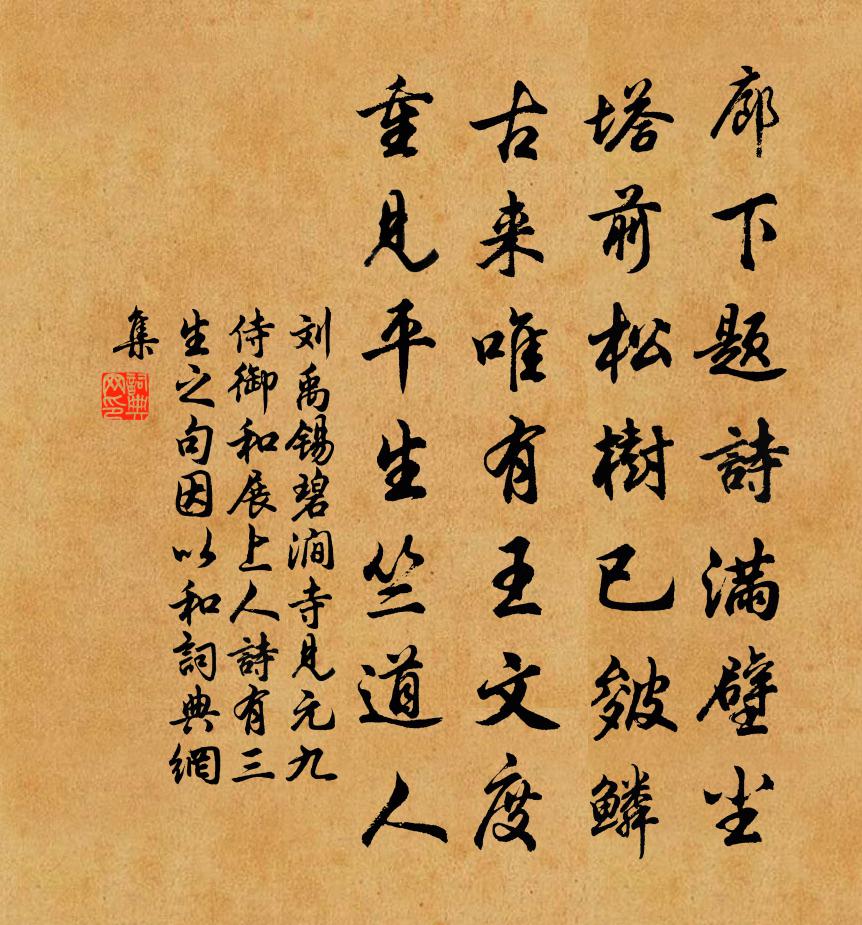 廊下題詩滿壁尘
塔前松樹已皴鱗
古来唯有王文度
重見平生竺道人
刘禹锡碧澗寺見元九
侍御和展上人詩有三
生之句因以和詞典網
集
詞典
网印